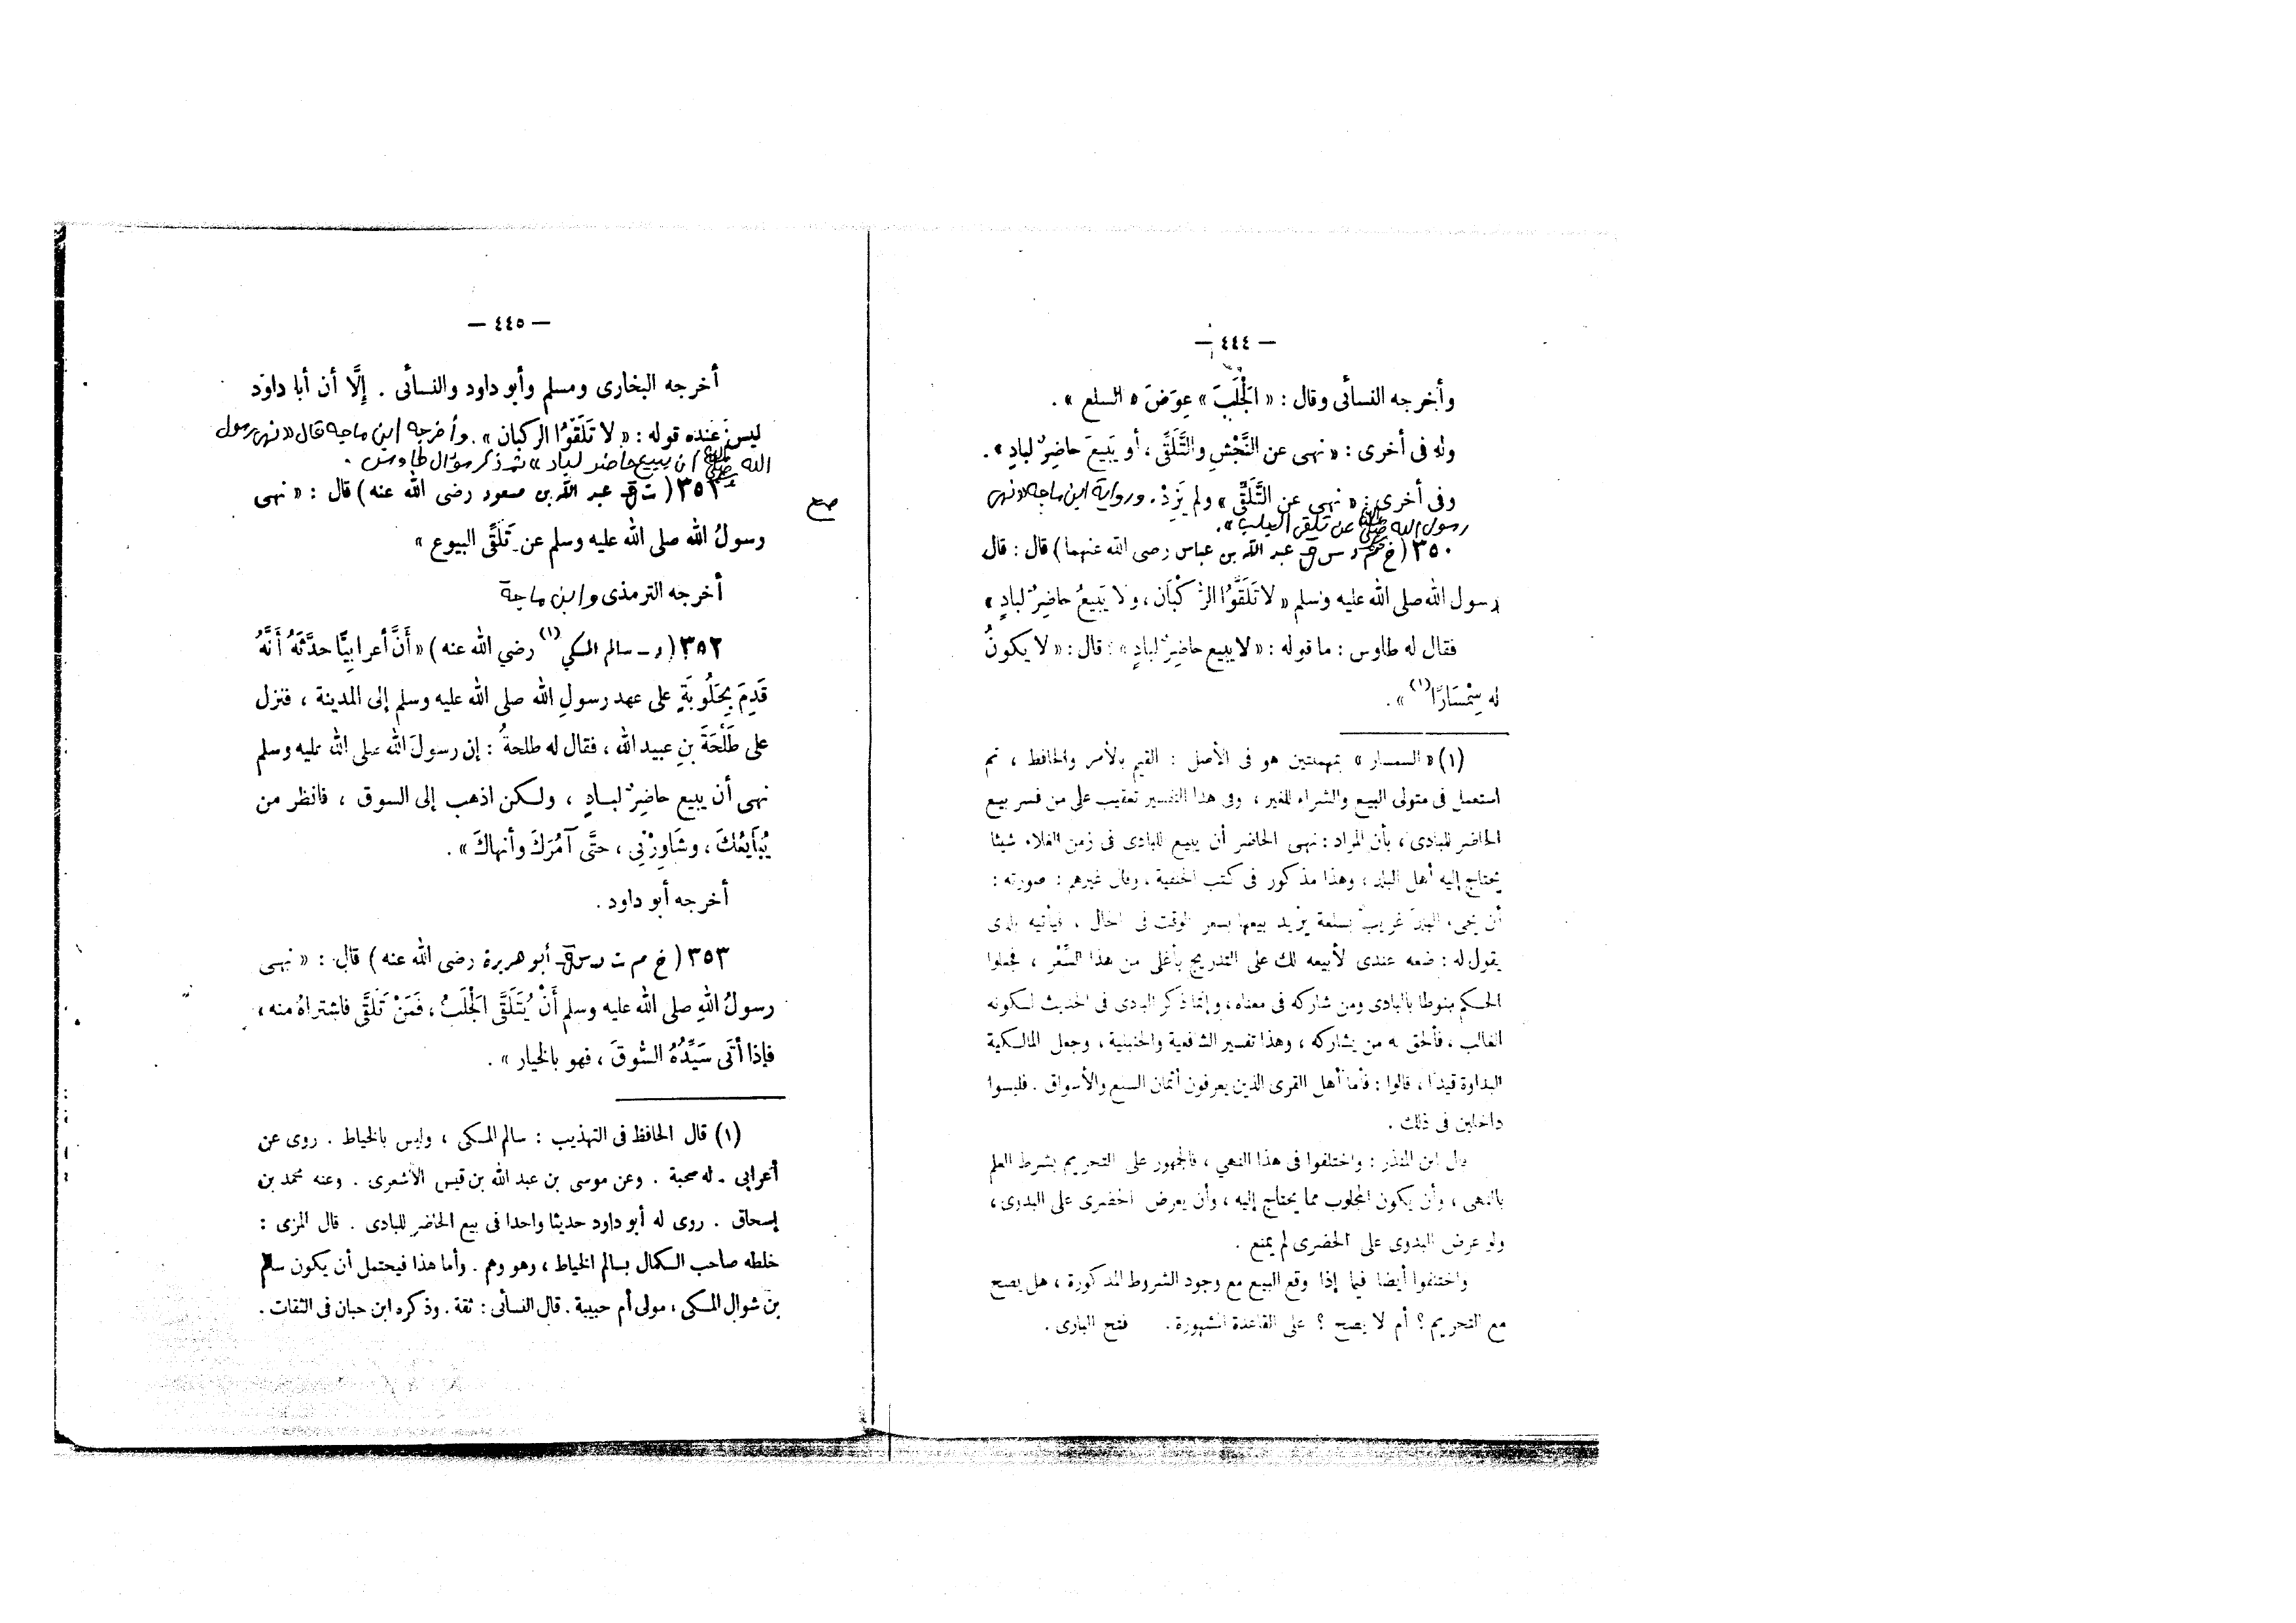 — ٤٤٤ —
وأخرجه النسائى وقال : « الْجَلَبَ » عِوَضَ « السلع » .
وله فى أخرى : « نهى عن النَّجْشِ والتَّلَقِّى ، أو يَبيعَ حاضِرٌ لبادٍ » .
وفى أخرى : « نهى عن التَّلَقِّى » ولم يَزِدْ . ورواية ابن ماجه « نهى
رسول الله ﷺ عن تلقى الجلب » .
٣٥٠ ( خ م د س ق - عبد الله بن عباس رضى الله عنهما ) قال : قال
رسول الله صلى الله عليه وسلم « لا تَلَقَّوُا الرُّكْبَانَ ، ولا يَبِيعُ حاضِرٌ لبادٍ »
فقال له طاوس : ما قوله : « لا يبيع حاضِرٌ لبادٍ » ؟ قال : « لا يكونُ
له سِمْسَارًا (١) » .
(١) « السمسار » بمهملتين هو فى الأصل : القيم بالأمر والحافظ ، ثم
استعمل فى متولى البيع والشراء للغير ، وفى هذا التفسير تعقيب على من فسر بيع
الحاضر للبادى ، بأن المراد : نهى الحاضر أن يبيع للبادى فى زمن الغلاء شيئا
يحتاج إليه أهل البلد ، وهذا مذكور فى كتب الحنفية . وقال غيرهم : صورته :
أن يجىء البلد غريب بسلعة يريد بيعها بسعر الوقت فى الحال ، فيأتيه بلدى
يقول له : ضعه عندى لأبيعه لك على التدريج بأغلى من هذا السِّعْر ، فجعلوا
الحكم منوطا بالبادى ومن شاركه فى معناه ، وإنما ذكر البادى فى الحديث لكونه
الغالب ، فألحق به من يشاركه ، وهذا تفسير الشافعية والحنبلية ، وجعل المالكية
البداوة قيدًا ، قالوا : فأما أهل القرى الذين يعرفون أثمان السلع والأسواق . فليسوا
داخلين فى ذلك .
قال ابن المنذر : واختلفوا فى هذا النهي ، فالجمهور على التحريم بشرط العلم
بالنهى ، وأن يكون المجلوب مما يحتاج إليه ، وأن يعرض الحضرى على البدوى ،
ولو عرض البدوى على الحضرى لم يمنع .
واختلفوا أيضا فيما إذا وقع البيع مع وجود الشروط المذكورة ، هل يصح
مع التحريم ؟ أم لا يصح ؟ على القاعدة المشهورة . فتح البارى .
— ٤٤٥ —
أخرجه البخارى ومسلم وأبو داود والنسائى . إلَّا أن أبا داوَد
ليسَ عنده قوله : « لا تَلَقَّوُا الركبان » . وأخرجه ابن ماجه قال « نهى رسول
الله ﷺ ان يبيع حاضر لباد » ثم ذكر سؤال طاوس .
٣٥١ ( ت ق - عبد الله بن مسعود رضى الله عنه ) قال : « نهى
صح
رسولُ الله صلى الله عليه وسلم عن تَلَقِّى البيوع »
أخرجه الترمذى وابن ماجة
٣٥٢ ( د - سالم المكي (١) رضي الله عنه ) « أَنَّ أعرابِيًّا حدَّثَهُ أَنَّهُ
قَدِمَ بِحَلُوبَةٍ على عهد رسولِ الله صلى الله عليه وسلم إلى المدينة ، فنزل
على طَلْحَةَ بنِ عبيد الله ، فقال له طلحةُ : إن رسولَ الله صلى الله عليه وسلم
نهى أن يبيع حاضِرٌ لبادٍ ، ولكن اذهب إلى السوق ، فانظر من
يُبَايِعُكَ ، وشَاوِرْنِي ، حتَّى آمُرَكَ وأنهاكَ » .
أخرجه أبو داود .
٣٥٣ ( خ م ت د س ق - أبو هريرة رضى الله عنه ) قال : « نهى
رسولُ اللهِ صلى الله عليه وسلم أَنْ يُتَلَقَّى الْجَلَبُ ، فَمَنْ تَلَقَّى فاشتراهُ منه ،
فإذا أَتَى سَيِّدُهُ السُّوقَ ، فهو بالخيار » .
(١) قال الحافظ فى التهذيب : سالم المكى ، وليس بالخياط . روى عن
أعرابى - له صحبة . وعن موسى بن عبد الله بن قيس الأشعرى . وعنه محمد بن
إسحاق . روى له أبو داود حديثا واحدا فى بيع الحاضر للبادى . قال المزى :
خلطه صاحب الكمال بسالم الخياط ، وهو وهم . وأما هذا فيحتمل أن يكون سالم
بن شوال المكى ، مولى أم حبيبة . قال النسائى : ثقة . وذكره ابن حبان فى الثقات .